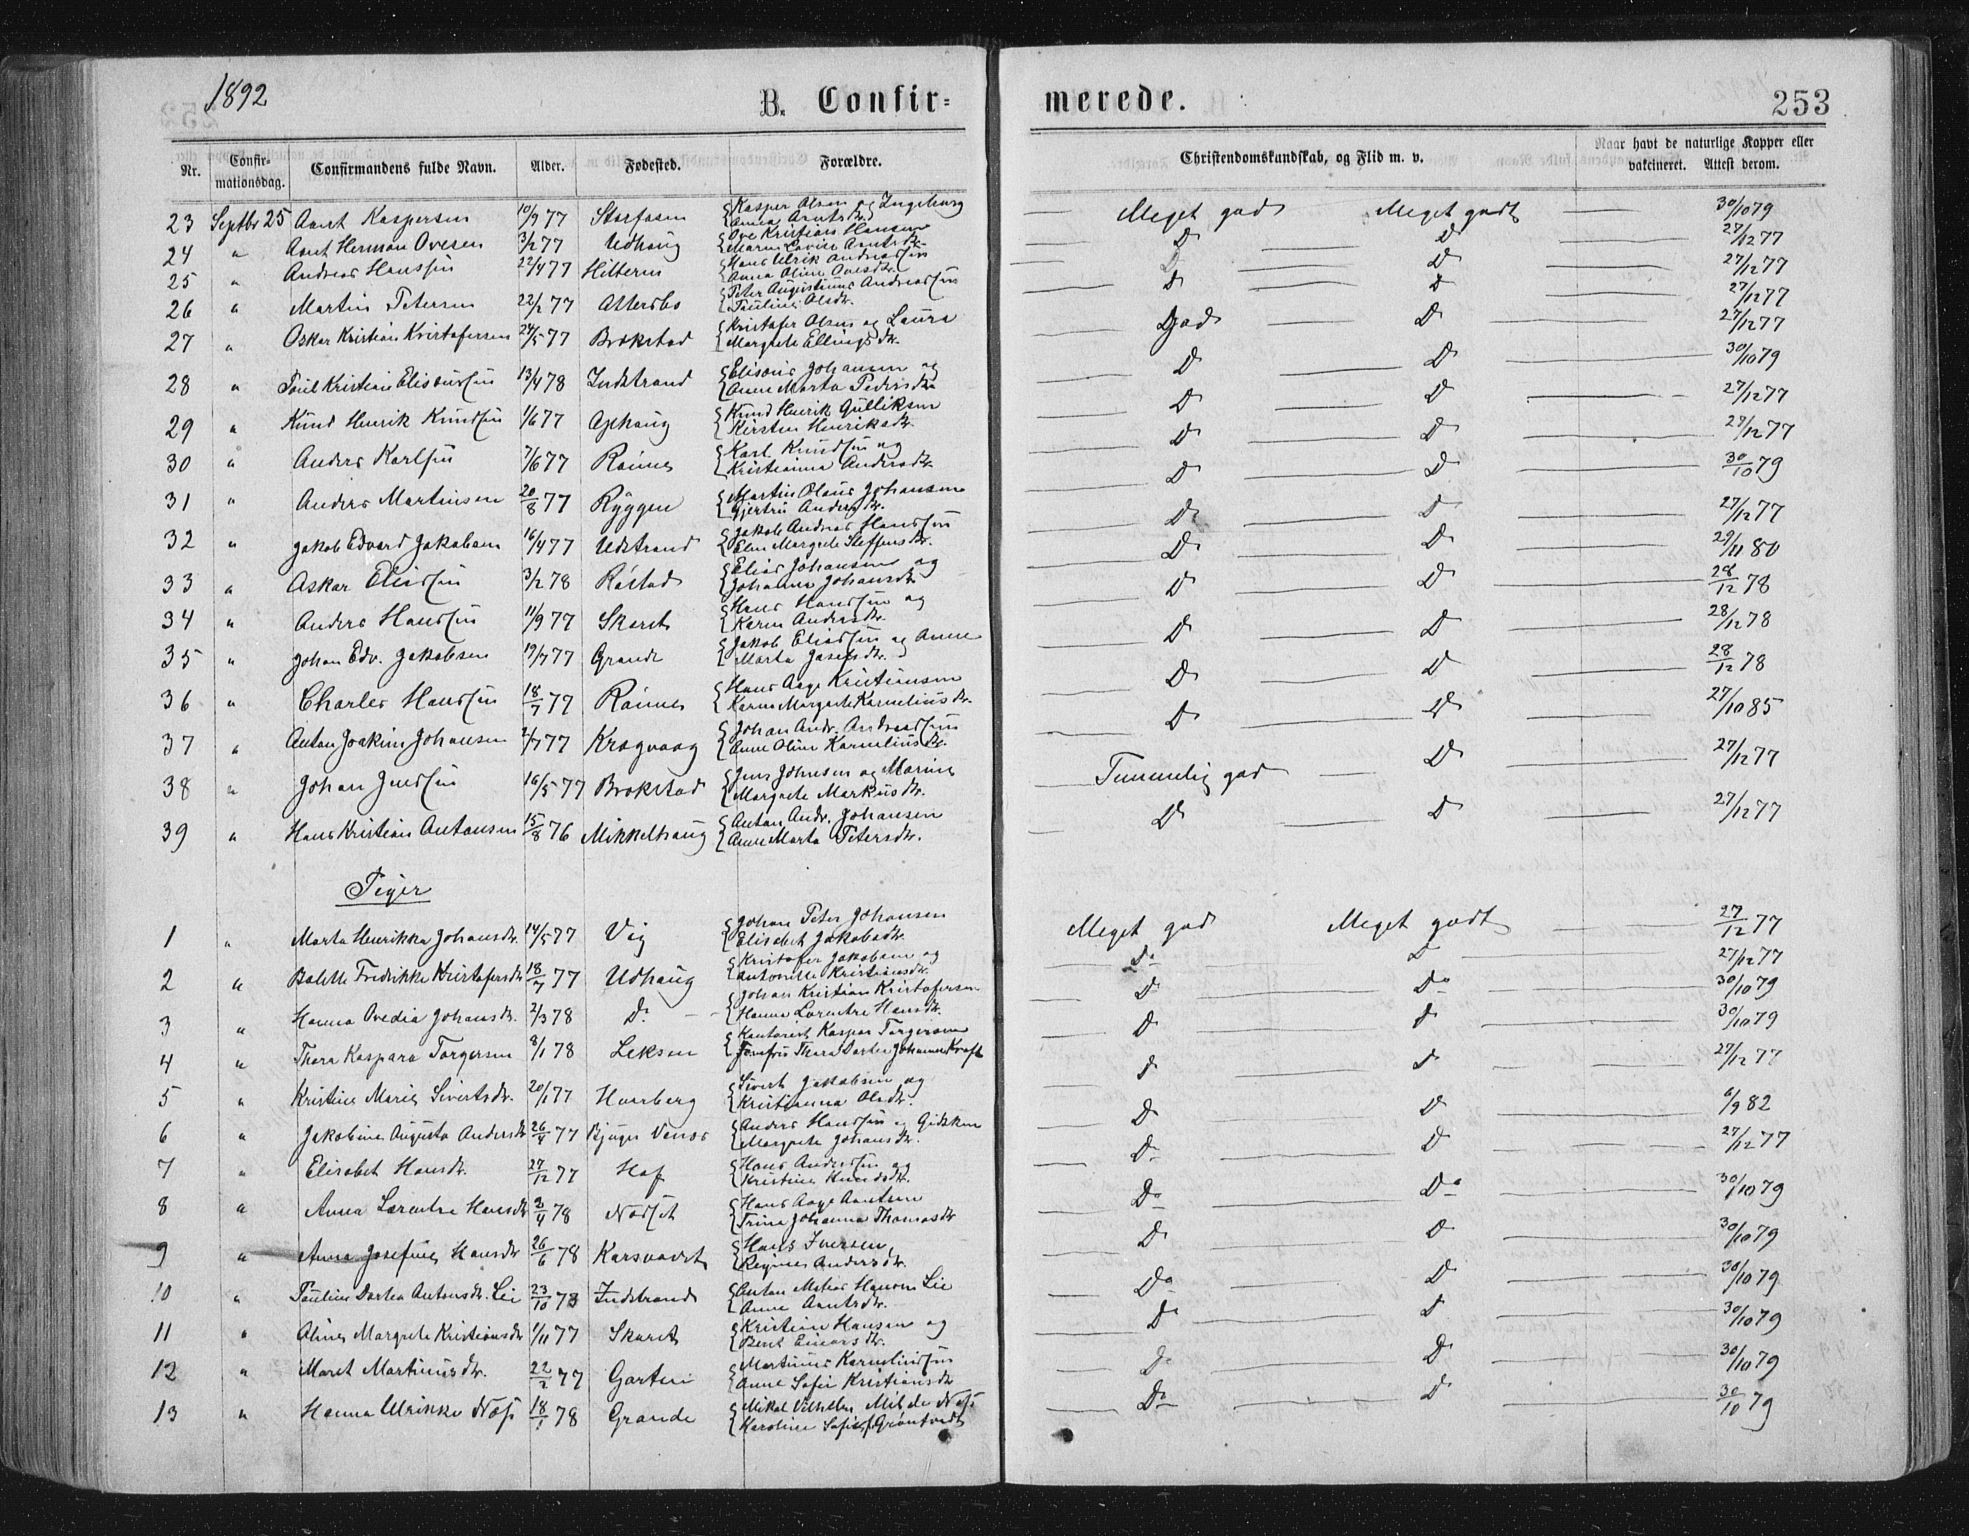 1892
B. Confir=
merede.
253
Nr. Confirmationsdag. Confirmandens fulde Navn. Alder. Fødested. Forældre. Christendomskundskab, og Flid m. v. Naar havt de naturlige Kopper eller vakcineret. Attest derom.
23 Septbr 25 Arnt Kaspersen 10/9 77 Storfosen {Kasper Olsen og Ingeborg Anna Arntsdr. Meget god Meget godt 30/10 79
24 " Arnt Herman Ovesen 3/2 77 Udhaug {Ove Kristian Hansen Maren Lovise Arntsdr. Do Do 27/12 77
25 " Andreas Hanssen 22/4 77 Hitteren {Hans Ulrik Andreassen Anna Oline Ovesdr. Do Do 27/12 77
26 " Martin Petersen 22/2 77 {Peter Augustinus Andreassen Pauline Olsdr. Do Do 27/12 77
27 " Oskar Kristian Kristofersen 24/5 77 Brekstad {Kristofer Olsen og Laura Margrete Ellingsdr. God Do 27/12 77
28 " Paul Kristian Elisæussen 13/4 78 Indstrand {Elisæus Johansen og Anne Marta Pedersdr. Do Do 30/10 79
29 " Knud Henrik Knudsen 1/6 77 Ophaug {Knud Henrik Gulliksen Kirsten Henriksdr. Do Do 27/12 77
30 " Anders Karlsen 7/6 77 Rønnes {Karl Knudsen og Kristianna Andersdr. Do Do 27/12 77
31 " Anders Martinsen 20/8 77 Ryggen {Martin Olaus Johansen Gjertru Andersdr. Do Do 30/10 79
32 " Jakob Edvard Jakobsen 16/4 77 Udstrand {Jakob Andreas Hanssen Elen Margrete Steffensdr. Do Do 27/12 77
33 " Askar Eliassen 3/2 78 Røstad {Elias Johansen og Johanna Johansdr. Do Do 29/11 80
34 " Anders Hanssen 11/9 77 Skaret {Hans Hanssen og Karen Andersdr. Do Do 28/12 78
35 " Johan Edv. Jakobsen 19/7 77 Grande {Jakob Eliassen og Anne Marta Josefsdr. Do Do 28/12 78
36 " Charles Hanssen 18/7 77 Rønnes {Hans Aage Kristiansen Karen Margrete Korneliusdr. Do Do 28/12 78
37 " Anton Joakim Johansen 2/7 77 Kragvaag {Johan Andr. Andreassen Anne Oline Korneliusdr. Do Do 27/10 85
38 " Johan Jenssen 16/5 77 Brekstad {Jens Johnsen og Marine Margrete Markusdr. Temmelig god Do 27/12 77
39 " Hans Kristian Antonsen 15/8 76 Mikkelhaug {Anton Andr. Johansen Anne Marta Petersdr. Do Do 27/12 77
Piger
1 " Marta Henrikka Johansdr. 14/5 77 Vig {Johan Peter Johansen Elisabet Jakobsdr. Meget god Meget godt 27/12 77
2 " Bolette Fredrikke Kristofersdr. 18/7 77 Udhaug {Kristofer Jakobsen og Antonette Kristiansdr. Do Do 27/12 77
3 " Hanna Ovedia Johansdr. 2/3 78 Do {Johan Kristian Kristofersen Hanna Lorentse Hansdr. Do Do 30/10 79
4 " Thora Kaspara Torgersen 8/1 78 Leksen {Kontorist Kaspar Torgersen Jomfru Thora Dortea Johanna Kraft Do Do 30/10 79
5 " Kristine Marie Sivertsdr. 20/1 77 Hoverberg {Sivert Jakobsen og Kristianna Olsdr. Do Do 27/12 77
6 " Jakobine Augusta Andersdr. 26/4 77 Bjugn {Anders Hanssen og Gidsken Margrete Johansdr. Do Do 6/9 82
7 " Elisabet Hansdr. 27/12 77 Hof {Hans Anderssen og Kristine Knudsdr. Do Do 27/12 77
8 " Anna Lorentse Hansdr. 3/4 78 Nødset {Hans Aage Arntsen Trine Johanna Thomasdr. Do Do 30/10 79
9 " Anna Josefine Hansdr. 26/6 78 {Hans Iversen, Regine Andersdr. Do Do 30/10 79
10 " Pauline Dortea Antonsdr. Lie 23/10 78 Indstrand {Anton Matias Hansen Lie Anne Arntsdr. Do Do 30/10 79
11 " Oline Margrete Kristiansdr. 1/11 77 Skaret {Kristian Hansen og Beret Einarsdr. Do Do 30/10 79
12 " Maret Martinusdr. 22/2 77 Garten {Martinus Korneliussen Anne Sofie Kristiansdr. Do Do 30/10 79
13 " Hanna Ulrikke Næss 18/1 78 Grande {Mikal Vilhelm Milde Næss Karoline Sofie f. Grøntvedt Do Do 30/10 79